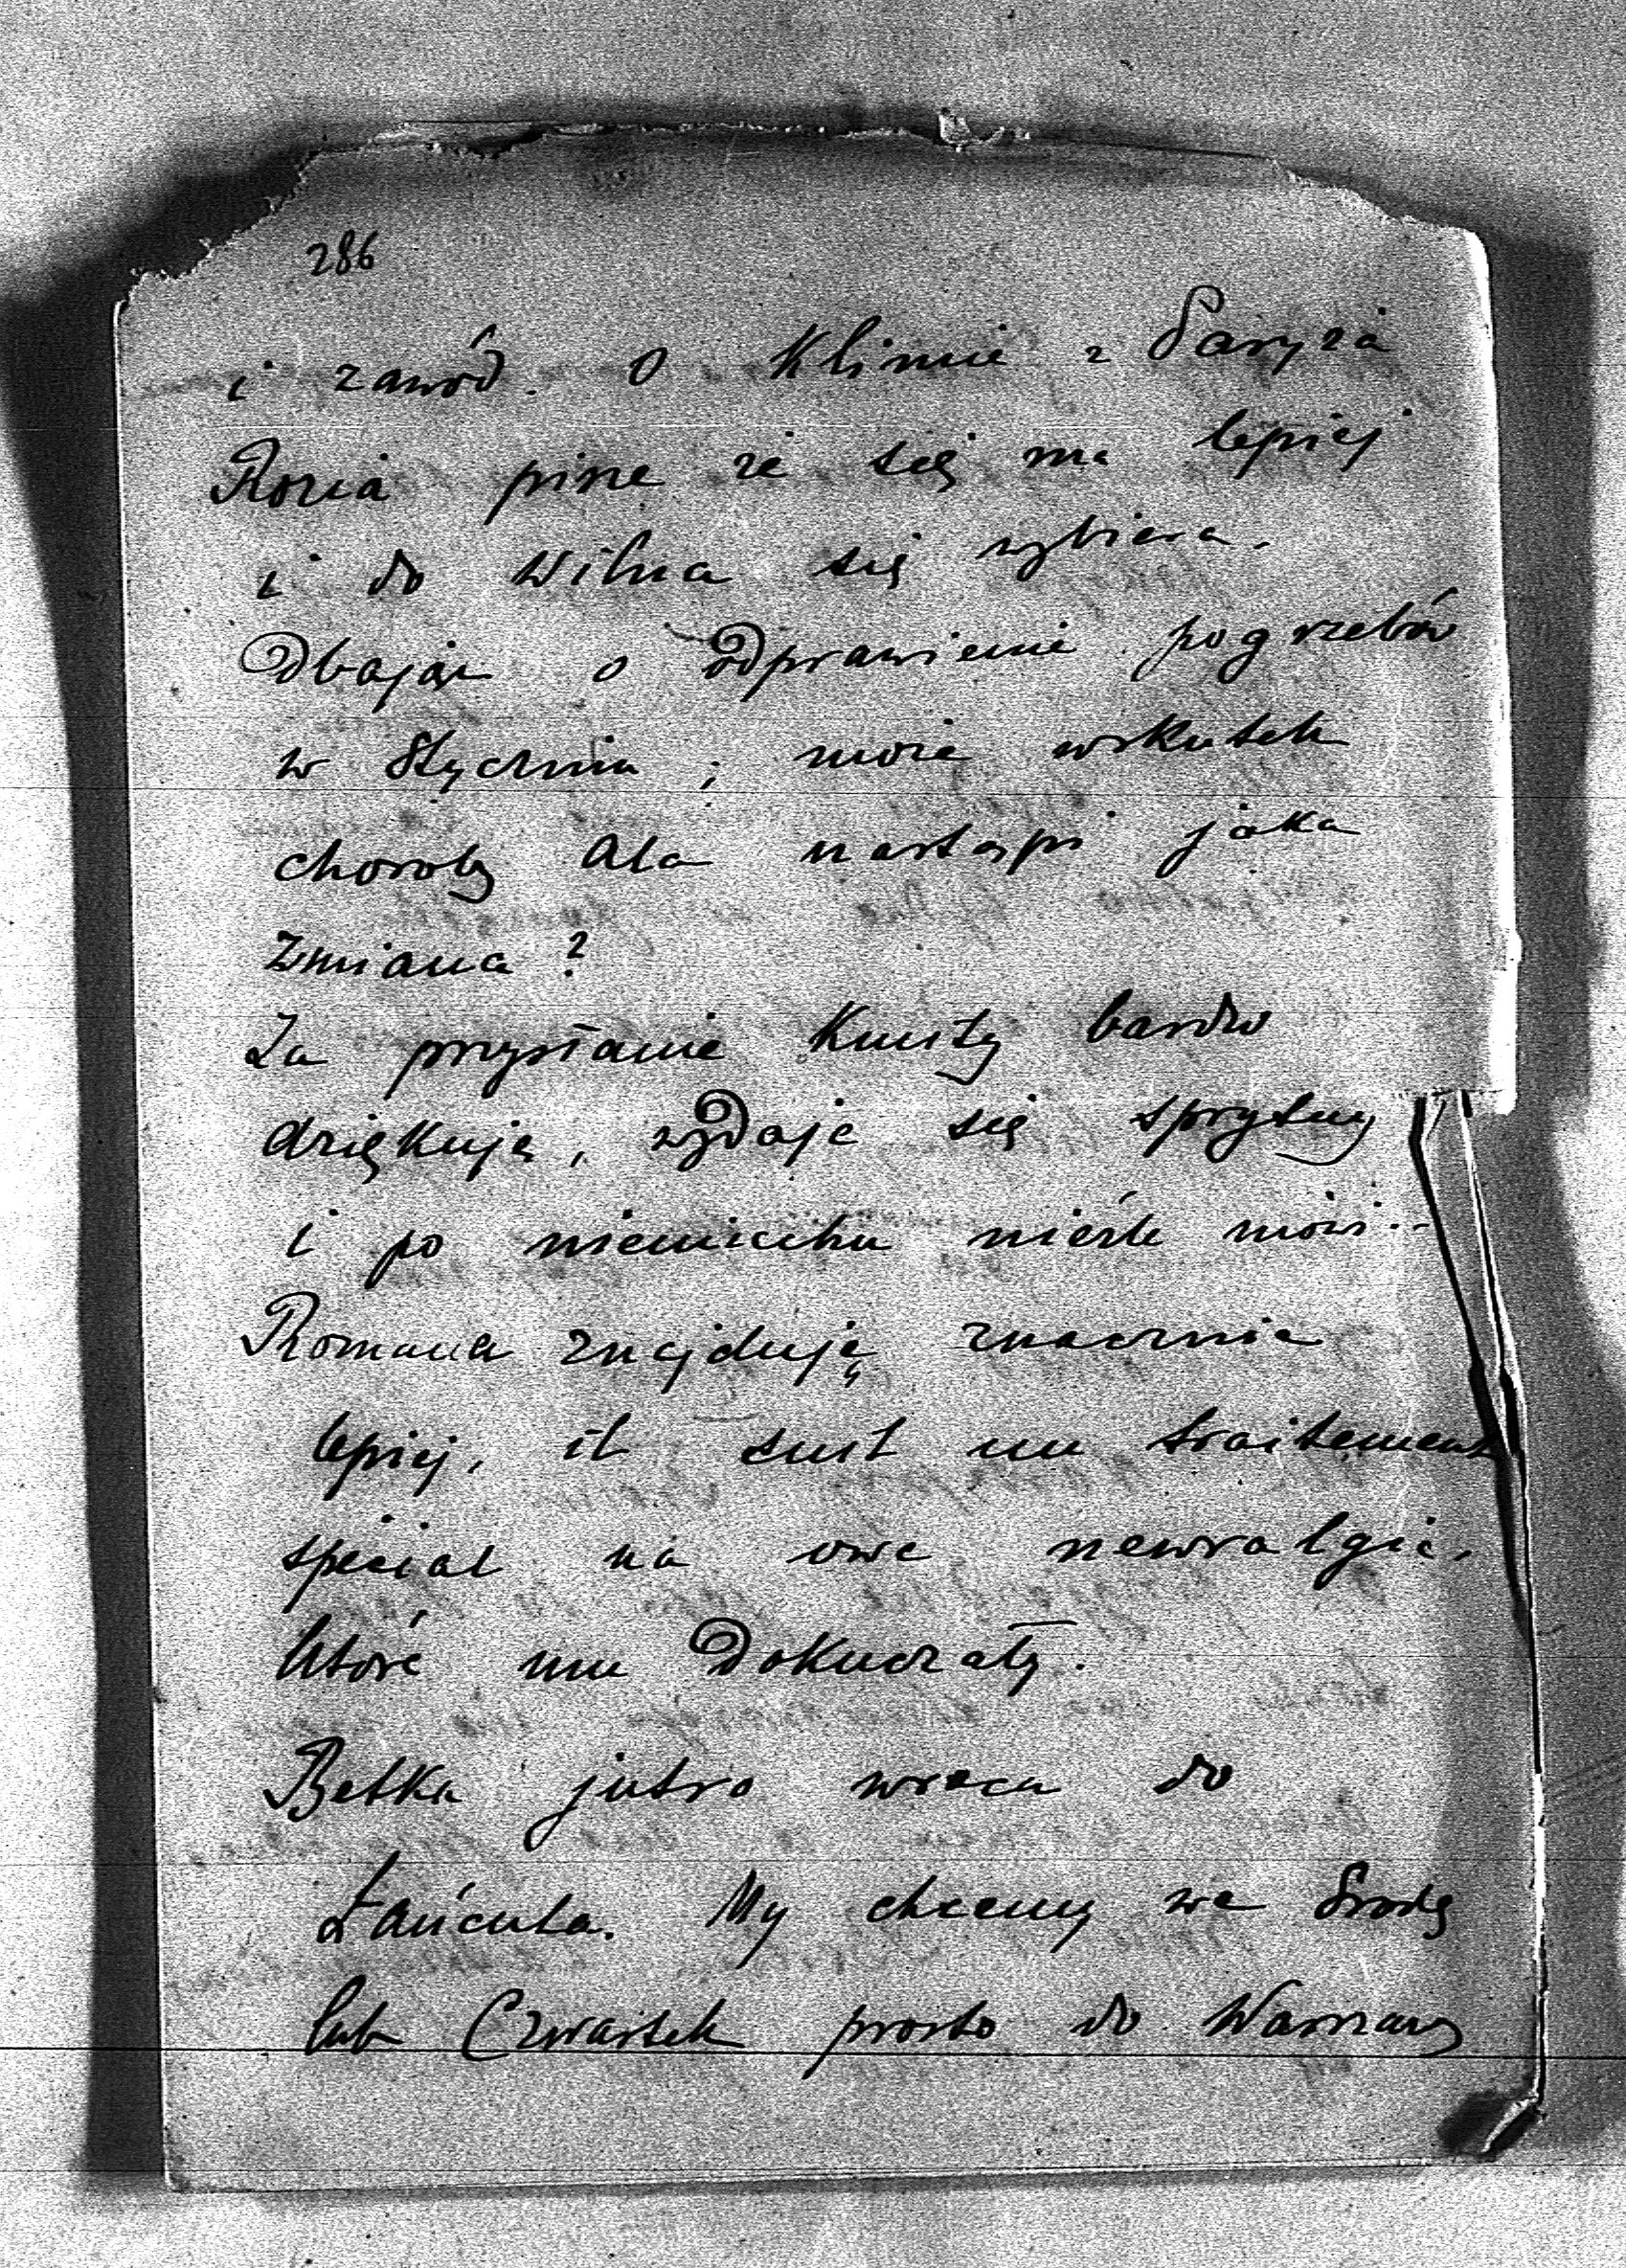 286
i zawód. O Klimie z Paryża
Rozia pisze że się ma lepiej
i do Wilna się wybiera.
Dbając o odprawienie pogrzebów
w Styczniu ; może wskutek
choroby Ala nastąpi jaka
zmiana ?
Za przysłanie Kursty bardzo
dziękuję, wydaje się sprytny
i po niemiecku nieźle mówi..
Romana znajduję znacznie
lepiej, il suit un traitement
special na owe newralgie,
które mu dokuczały.
Betka jutro wraca do
Łańcuta. My chcemy we Środę
lub Czwartek prosto do Warszawy